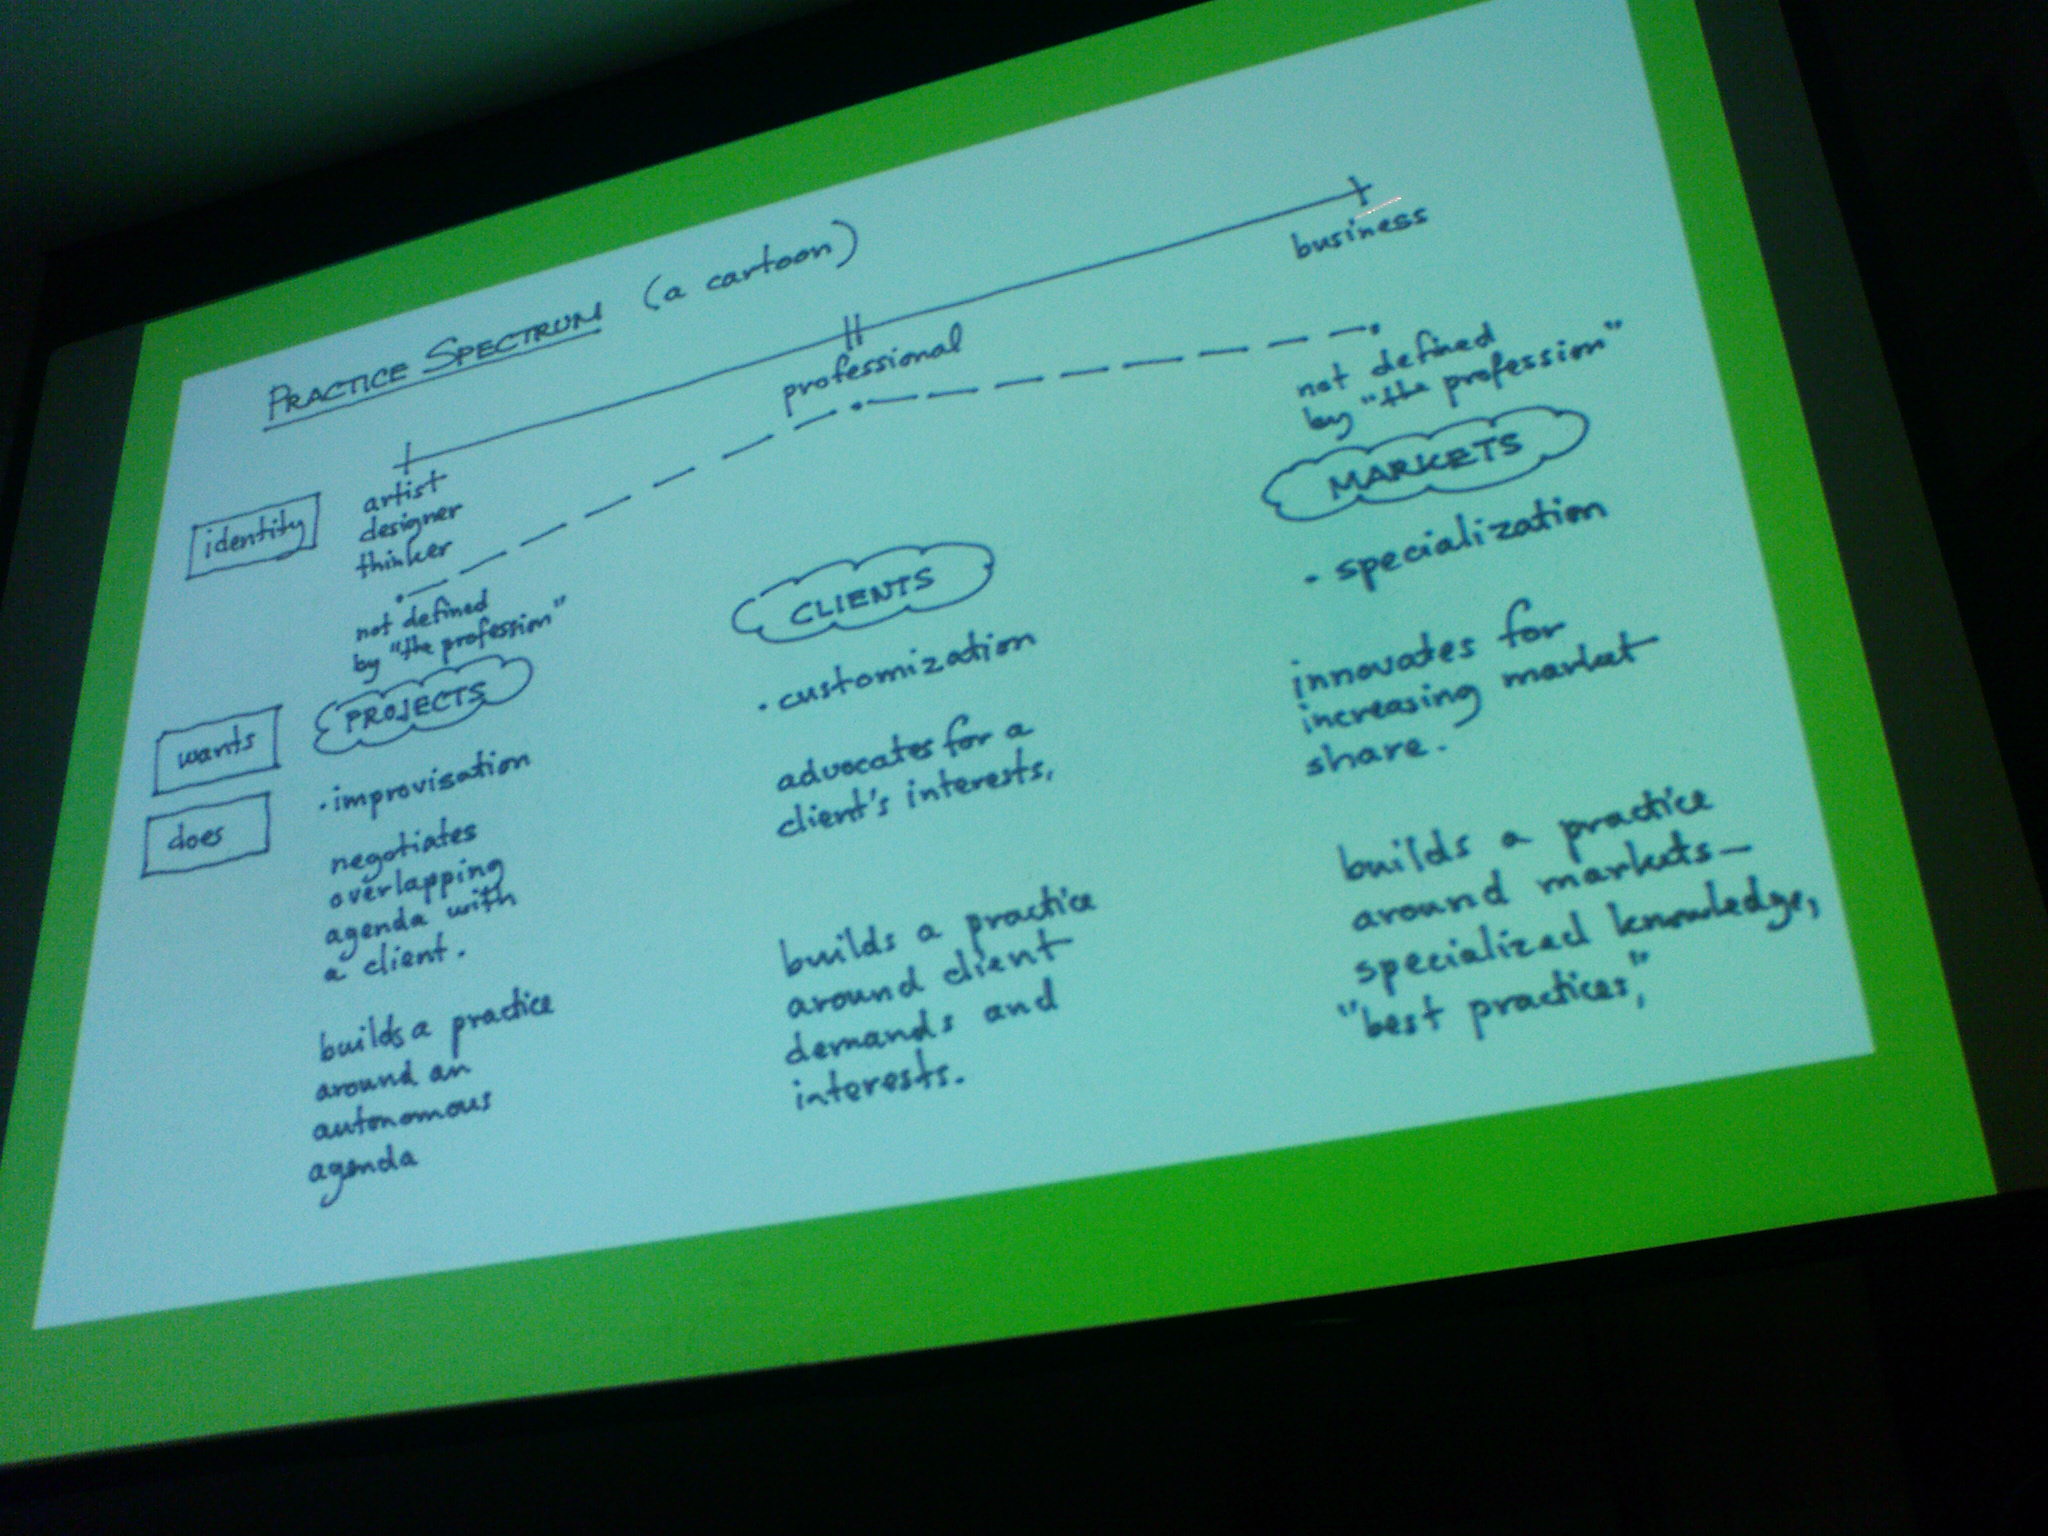 PRACTICE SPECTRUM (a cartoon)
identity
artist
designer
thinker
not defined
by "the profession"
professional
business
not defined
by "the profession"
wants
PROJECTS
CLIENTS
MARKETS
does
• improvisation
negotiates
overlapping
agenda with
a client.
builds a practice
around an
autonomous
agenda
• customization
advocates for a
client's interests,
builds a practice
around client
demands and
interests.
• specialization
innovates for
increasing market
share.
builds a practice
around markets—
specialized knowledge,
"best practices,"